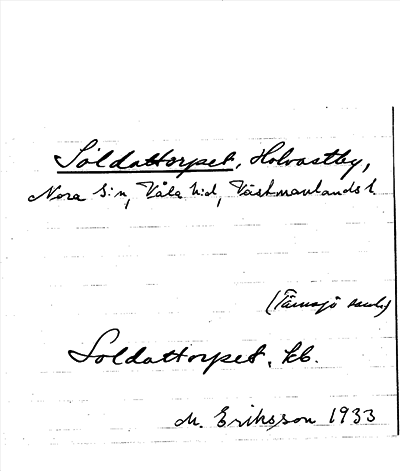 Soldattorpet, Holvastby,
Nora s:n, Våla hd, Västmanlands l.
(Tärnsjö samh)
Soldattorpet, kb.
M. Eriksson 1933